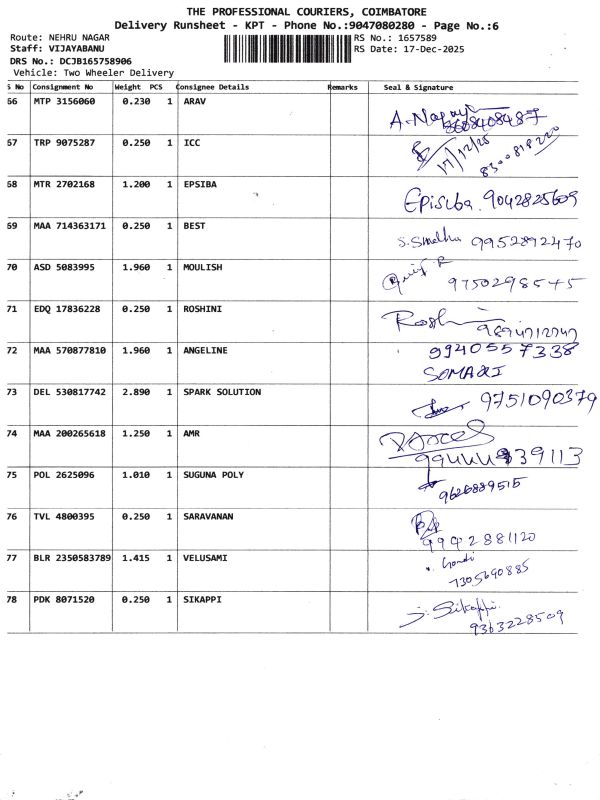 THE PROFESSIONAL COURIERS, COIMBATORE
Delivery Runsheet - KPT - Phone No.:9047080280 - Page No.:6
Route: NEHRU NAGAR RS No.: 1657589
Staff: VIJAYABANU RS Date: 17-Dec-2025
DRS No.: DCJB165758906
Vehicle: Two Wheeler Delivery
S No Consignment No Weight PCS Consignee Details Remarks Seal & Signature
66 MTP 3156060 0.230 1 ARAV
67 TRP 9075287 0.250 1 ICC 17/12/25
8300818220
68 MTR 2702168 1.200 1 EPSIBA Episiba. 9042825609
69 MAA 714363171 0.250 1 BEST 9952892470
70 ASD 5083995 1.960 1 MOULISH
71 EDQ 17836228 0.250 1 ROSHINI Roshini
72 MAA 570877810 1.960 1 ANGELINE 9940557338
73 DEL 530817742 2.890 1 SPARK SOLUTION 9751090379
74 MAA 200265618 1.250 1 AMR
75 POL 2625096 1.010 1 SUGUNA POLY 9626889515
76 TVL 4800395 0.250 1 SARAVANAN
9902881120
77 BLR 2350583789 1.415 1 VELUSAMI
7305690885
78 PDK 8071520 0.250 1 SIKAPPI J. Sikappi.
9363228509